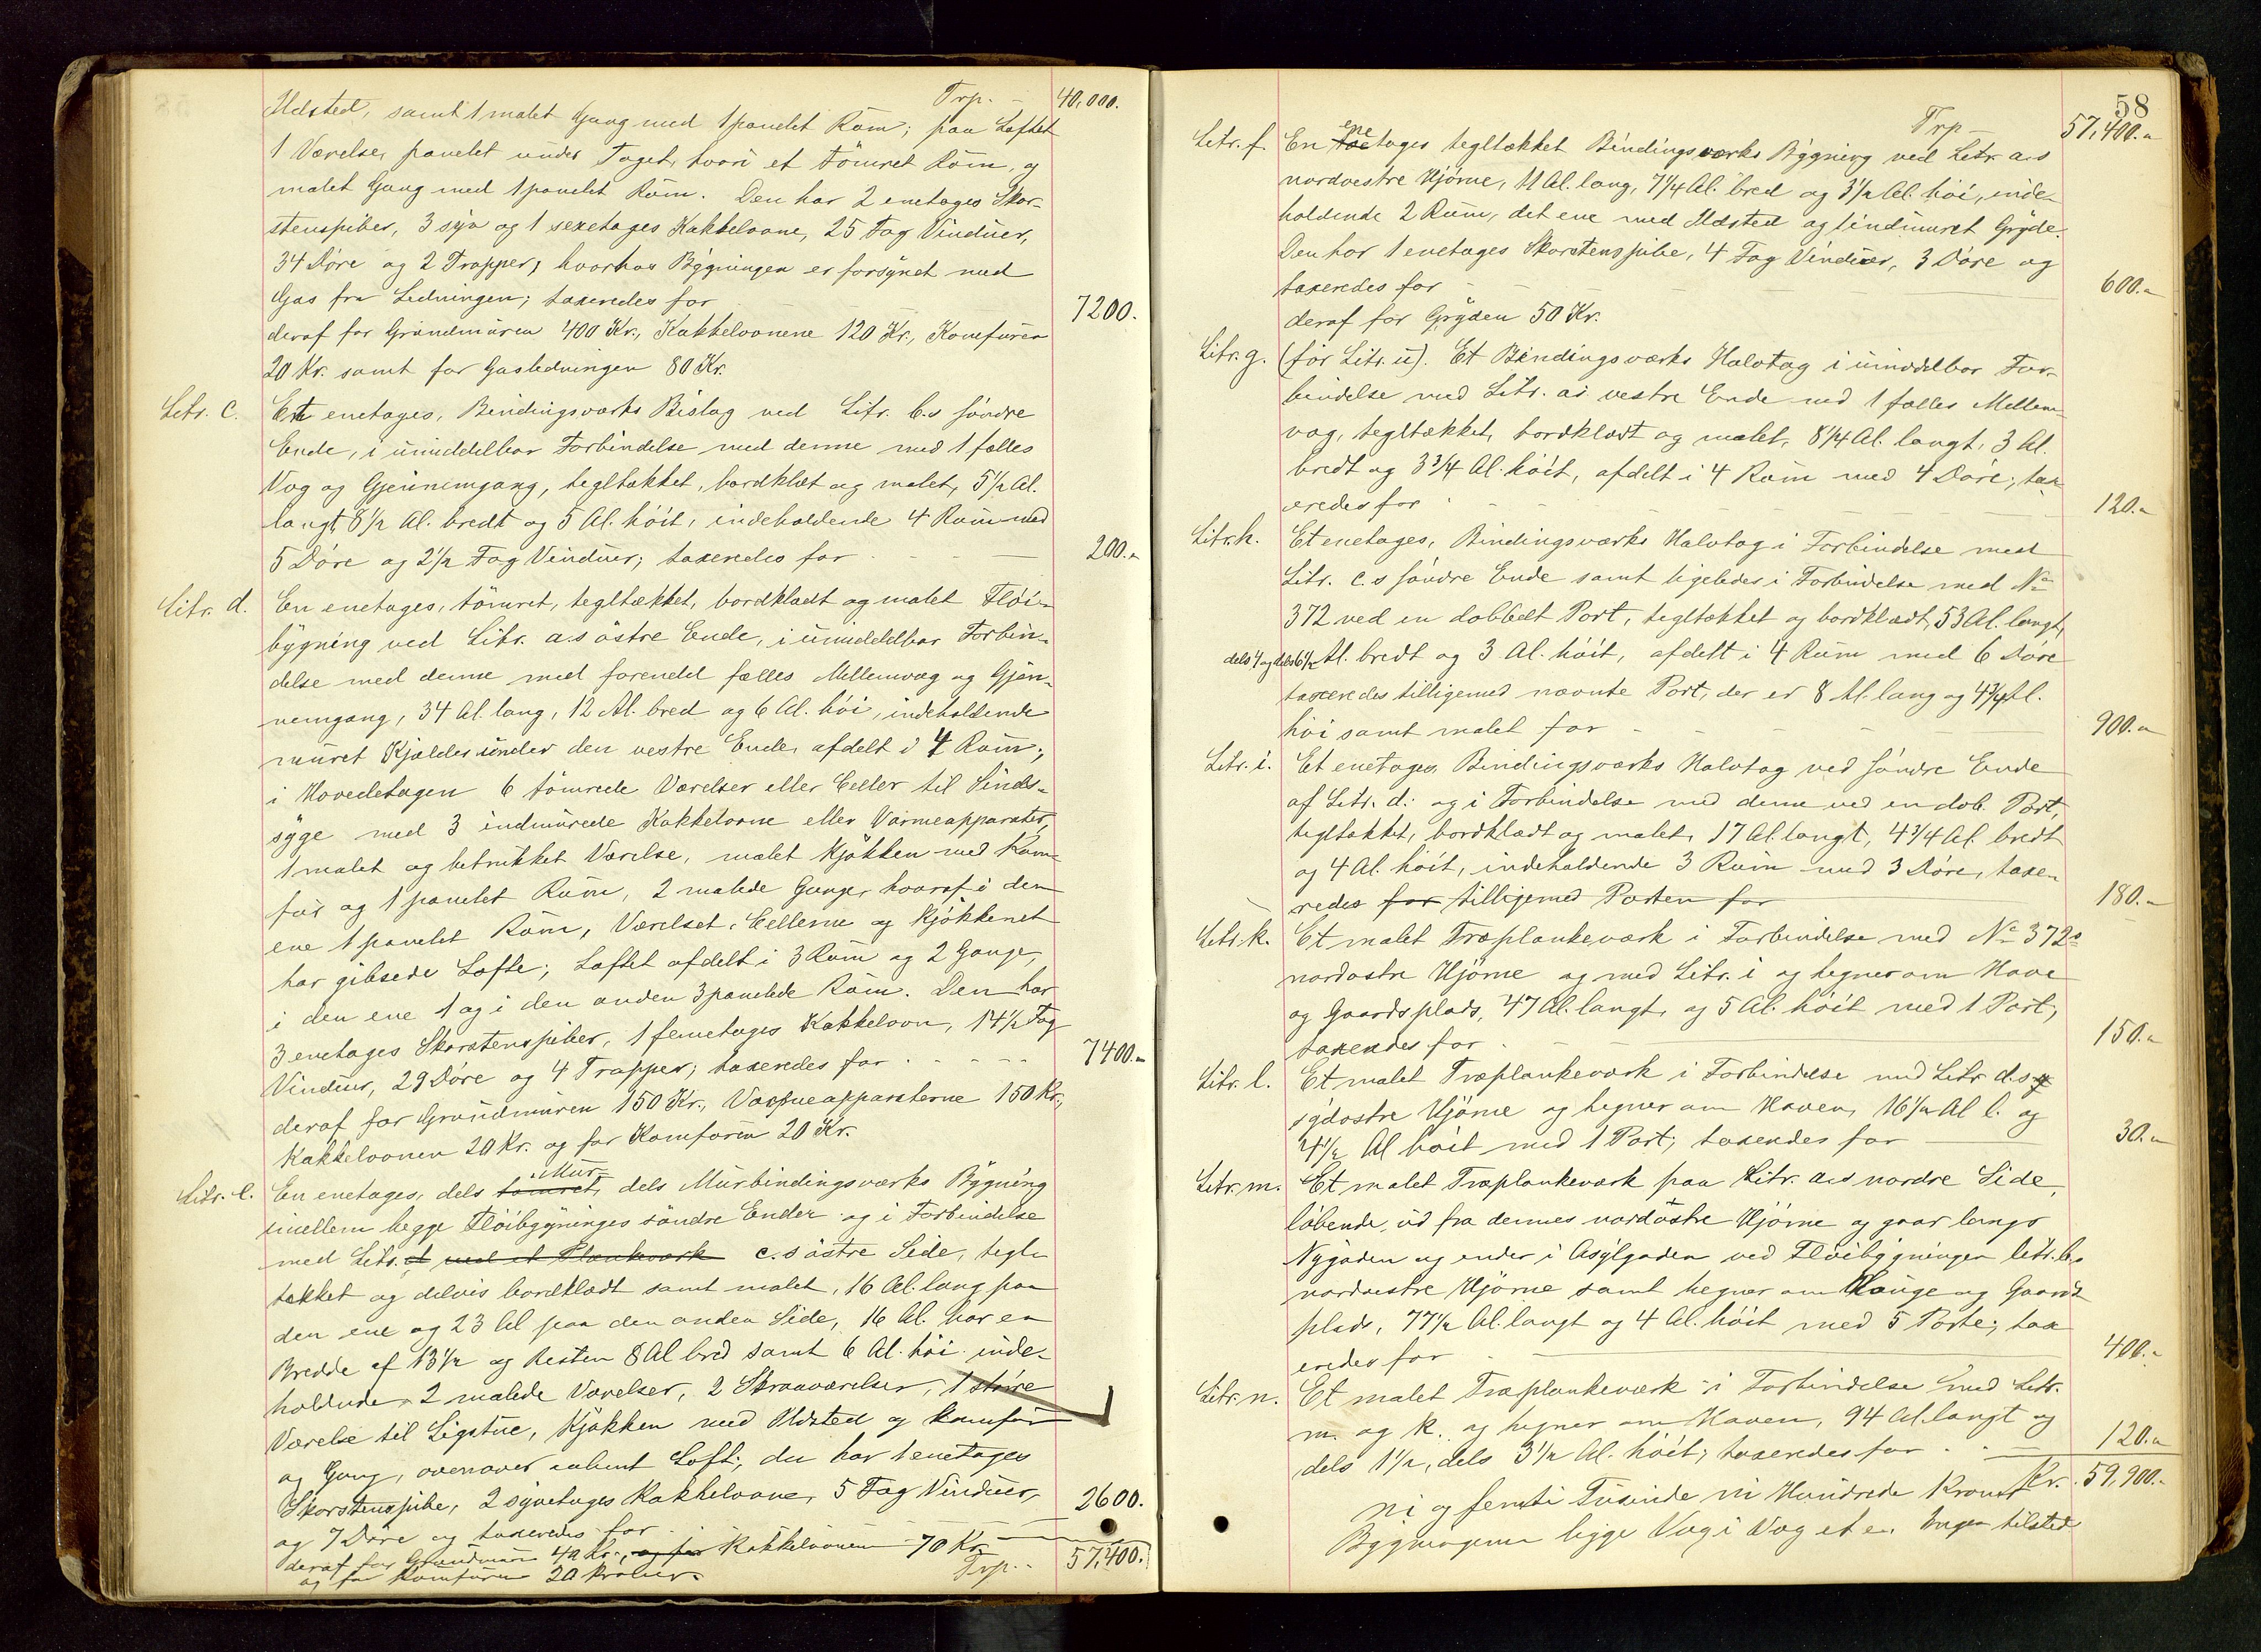 Trp. - 40,000.
Ildsted, samt 1 malet Gang med 1 panelet Rüm; paa Loftet
1 Værelse, panelet under Taget, hvori et tömret Rüm, og
malet Gang med 1 panelet Rüm. Den har 2 enetages Skor-
stenspiber, 3 syv og 1 sexetages Kakkelovne, 25 Fag Vindüer,
34 Döre og 2 Trapper, hvorhos Bygningen er forsynet med
Gas fra Ledningen; taxeredes for - - - 7200.
deraf for Gründmüren 400 Kr., Kakkelovnene 120 Kr., Komfüren
20 Kr. samt for Gasledningen 80 Kr.
Litr. c. Et enetages, Bindingsværks Bislag ved Litr. b.s söndre
Ende, i ümiddelbar Forbindelse med denne med 1 fælles
Væg og Gjennemgang, tegltækket, bordklæt og malet, 5½ Al.
langt, 8½ Al. bredt og 5 Al. höit, indeholdende 4 Rüm med
5 Döre og 2½ Fag Vindüer; taxeredes for - - - 200.-
Litr. d. En enetages, tömret, tegltækket, bordklædt og malet Flöi-
bygning ved Litr. a.s östre Ende, i ümiddelbar Forbin-
delse med denne med forendel fælles Mellemvæg og Gjen-
nemgang, 34 Al. lang, 12 Al. bred og 6 Al. höi, indeholdende
müret Kjelder ünder den vestre Ende, afdelt i 4 Rüm;
i Hovedetagen 6 tömrede Værelser eller Celler til Sinds-
syge med 3 indmürede Kakkelovne eller Varmeapparater,
1 malet og betrukket Værelse, malet Kjökken med Kom-
für og 1 panelet Rüm, 2 malede Gange, hvoraf i den
ene 1 panelet Rüm, Værelset, Cellerne og Kjökkenet
har gibsede Lofte; Loftet afdelt i 3 Rüm og 2 Gange,
i den ene 1 og i den anden 3 panelede Rüm. Den har
3 enetages Skorstenspiber, 1 femetages Kakkelovn, 14½ Fag
Vindüer, 29 Döre og 4 Trapper; taxeredes for - - - 7400.-
deraf for Gründmüren 150 Kr., Varmeapparaterne 150 Kr.,
Kakkelovnen 20 Kr. og for Komfüren 20 Kr.
Mür-
Litr. e. En enetages, dels tömret, dels Mürbindingsværks Bygning
imellem begge Flöibygninges söndre Ender og i Forbindelse
med Litr. d med et Plankværk c.s östre Side, tegl-
tækket og delvis bordklædt samt malet, 16 Al. lang paa
den ene og 23 Al paa den anden Side, 16 Al. har en
Bredde af 13½ og Resten 8 Al bred samt 6 Al. höi inde-
holdende 2 malede Værelser, 2 Skraaværelser, 1 större
Værelse til Ligstüe, Kjökken med Ildsted og Komfür
og Gang, ovenover Loft; den har 1 enetages
Skorstenspibe, 2 syvetages Kakkelovne, 5 Fag Vindüer,
og 7 Döre og taxeredes for - - - 2600.
deraf for Gründmüren 40 Kr., og for Kakkelovnen 70 Kr.
og for Komfüren 20 Kroner. Trp. - 57,400.
58
Trp - 57,400.-
ene
Litr. f. En toetages tegltækket Bindingsværks Bygning ved Litr. a.s
nordvestre Hjörne, 11 Al. lang, 7¼ Al. bred og 3½ Al. höi, inde-
holdende 2 Rüm, det ene med Ildsted og 1 indmüret Gryde.
Den har 1 enetages Skorstenspibe, 4 Fag Vindüer, 3 Döre og
taxeredes for - - - 600.-
deraf for Gryden 50 Kr.
Litr. g. (för Litr. u). Et Bindingsværks Halvtag i ümiddelbar For-
bindelse med Litr. a.s vestre Ende med 1 fælles Mellem-
væg, tegltækket, bordklædt og malet, 8¼ Al. langt, 3 Al.
bredt og 3¾ Al. höit, afdelt i 4 Rüm med 4 Döre; tax-
eredes for - - - 120.-
Litr. h. Et enetages, Bindingsværks Halvtag i Forbindelse med
Litr. c.s söndre Ende samt ligeledes i Forbindelse med No
372 ved en dobbelt Port, tegltækket og bordklædt, 53 Al. langt,
dels 4 og dels 6½ Al. bredt og 3 Al. höit, afdelt i 4 Rüm med 6 Döre
taxeredes tilligemed nævnte Port, der er 8 Al. lang og 4¾ Al.
höi samt malet for - - - 900.-
Litr. i. Et enetages Bindingsværks Halvtag ved söndre Ende
af Litr. d. og i Forbindelse med denne ved en dob. Port,
tegltækket, bordklædt og malet, 17 Al. langt, 4¾ Al. bredt
og 4 Al. höit, indeholdende 3 Rüm med 3 Döre, taxe-
redes for tilligemed Porten for 180.-
Litr. k. Et malet Træplankeværk i Forbindelse med No 372s
nordostre Hjörne og med Litr. i og hegner om Have
og Gaardsplads, 47 Al. langt, og 5 Al. höit med 1 Port;
taxeredes for - - - 150.-
Litr. l. Et malet Træplankeværk i Forbindelse med Litr d.s
sydostre Hjörne og hegner om Haven, 16½ Al l. og
4½ Al höit med 1 Port; taxeredes for 30.-
Litr. m. Et malet Træplankeværk paa Litr. a.s nordre Side,
löbende üd fra dennes nordöstre Hjörne og gaar langs
Nygaden og ender i Asylgaden ved Flöibygningen Litr. b.s
nordvestre Hjörne samt hegner om Hauge og Gaards-
plads, 77½ Al. langt og 4 Al. höit med 5 Porte; tax
eredes for - - - 400.-
Litr. n. Et malet Træplankeværk i Forbindelse med Litr.
m. og k. og hegner om Haven, 94 Al. langt og
dels 1½, dels 3½ Al. höit; taxeredes for - - - 120.-
Kr. 59,900.-
Ni og femti Tüsinde ni Hündrede Kroner
Bygningerne ligge Væg i Væg et c. Ingen tilsted